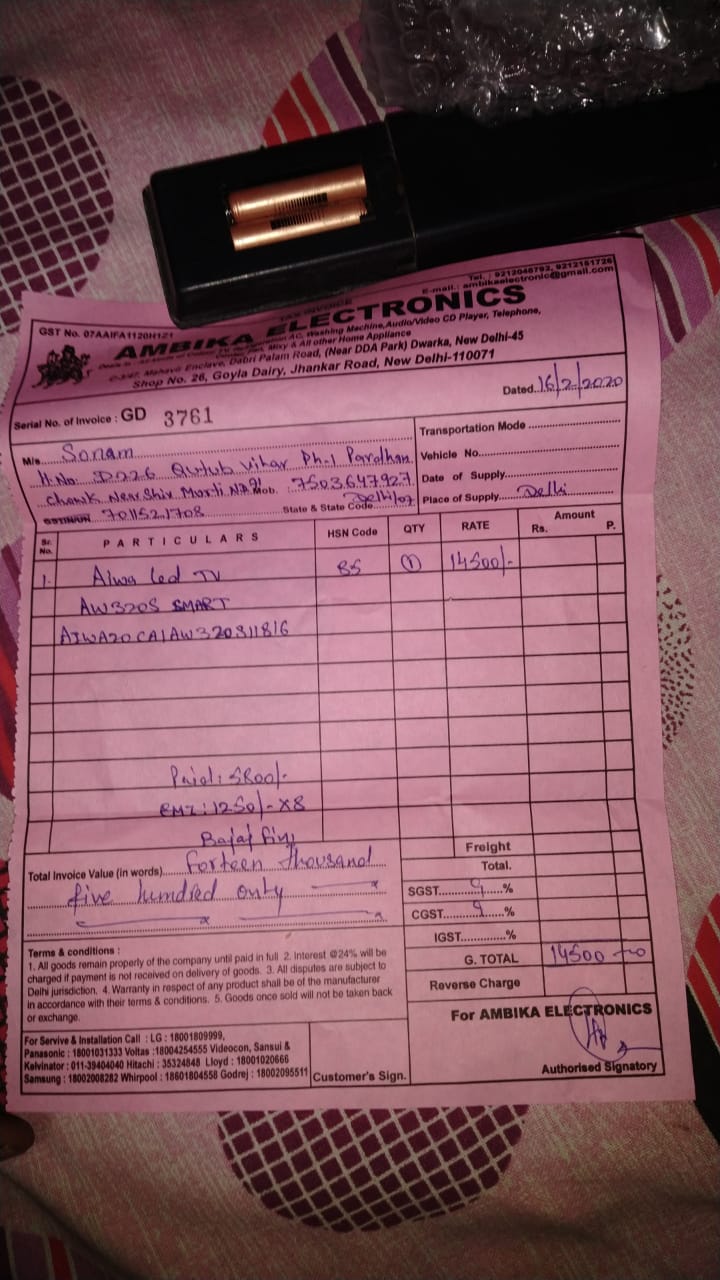 TAX INVOICE
Tel. : 9212048792, 9212181726
E-mail.: ambikaelectronic@gmail.com
GST No. 07AAIFA1120H1Z1
AMBIKA ELECTRONICS
AC, Washing Machine, Audio/Video CD Player, Telephone,
Mixy & All other Home Appliance
C-3/47, Mahavir Enclave, Dabri Palam Road, (Near DDA Park) Dwarka, New Delhi-45
Shop No. 26, Goyla Dairy, Jhankar Road, New Delhi-110071
Dated 16/2/2020
Serial No. of Invoice : GD 3761
M/s Sonam
H.No. D226 Qutub vihar Ph.1 Pardhan
Chowk Near Shiv Murti Mob. : 7503647927
7011521708 State & State Code Delhi/07
Transportation Mode
Vehicle No.
Date of Supply
Place of Supply Delhi
Sr. No. PARTICULARS HSN Code QTY RATE Amount Rs. P.
1. Aiwa Led TV 85 1 14500/-
AW320S SMART
AIWA20CA1AW320S11816
Paid: 5800/-
EMI: 1250/- x8
Bajaj Fin
Freight
Total Invoice Value (in words) forteen thousand
five hundred only
Total.
SGST 9 %
CGST 9 %
IGST %
G. TOTAL 14500
Reverse Charge
Terms & conditions :
1. All goods remain property of the company until paid in full 2. Interest @24% will be
charged if payment is not received on delivery of goods. 3. All disputes are subject to
Delhi jurisdiction. 4. Warranty in respect of any product shall be of the manufacturer
in accordance with their terms & conditions. 5. Goods once sold will not be taken back
or exchange.
For AMBIKA ELECTRONICS
Authorised Signatory
For Servive & Installation Call : LG : 18001809999,
Panasonic : 18001031333 Voltas :18004254555 Videocon, Sansui &
Kelvinator : 011-39404040 Hitachi : 35324848 Lloyd : 18001020666
Samsung : 18002008282 Whirpool : 18601804558 Godrej : 18002095511
Customer's Sign.